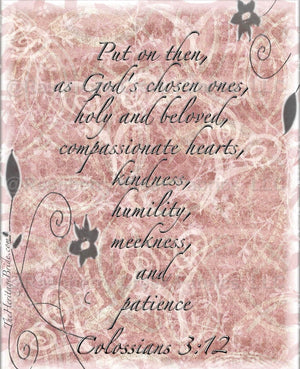 Put on then,
as God's chosen ones,
holy and beloved,
compassionate hearts,
kindness,
humility,
meekness,
and
patience
Colossians 3:12